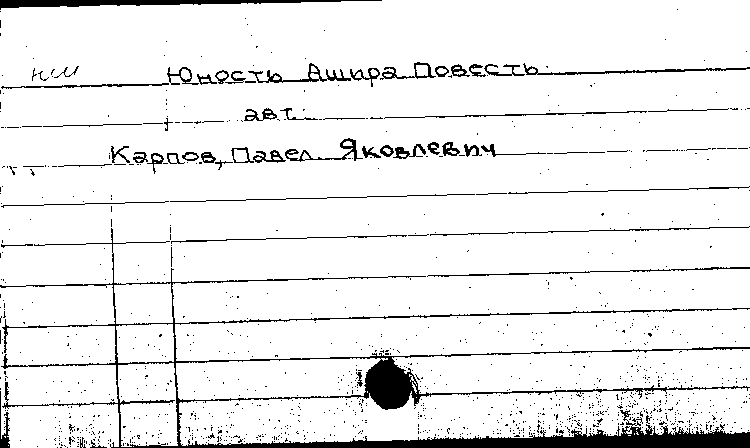 нш Юность Ашира Повесть.
авт.:
Карпов, Павел Яковлевич